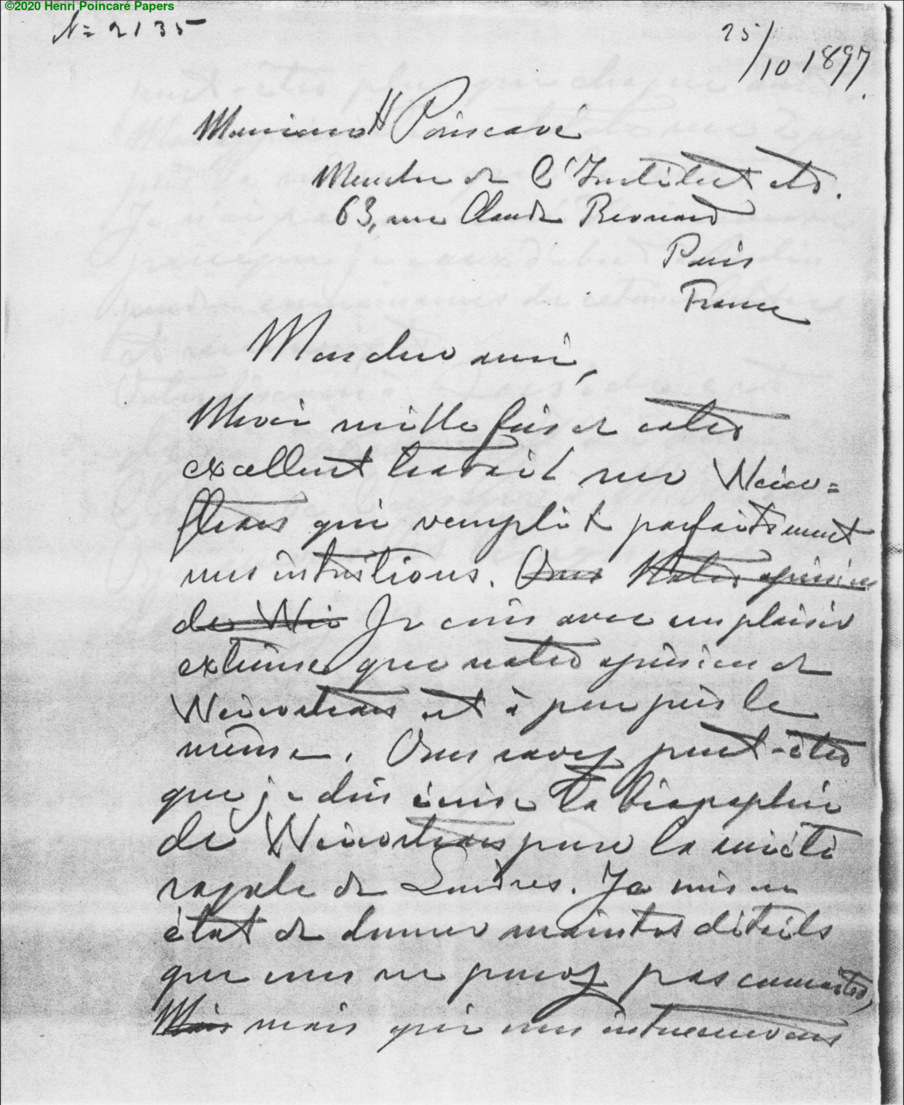 ©2020 Henri Poincaré Papers
N= 2135
25/10 1897.
Monsieur H Poincaré
Membre de l'Institut etc.
63, rue Claude Bernard
Paris
France
Mon cher ami,
Merci mille fois de votre
excellent travail sur Weier=
strass qui remplit parfaitement
mes intuitions. Vous Notre opinion
de Wei Je vois avec un plaisir
extrême que notre opinion de
Weierstrass est à peu près la
même. Vous savez peut-être
que je dois écrire la biographie
de Weierstrass pour la société
royale de Londres. Je suis en
état de donner maintes détails
que vous ne pouvez pas connaître,
Mais mais qui vous